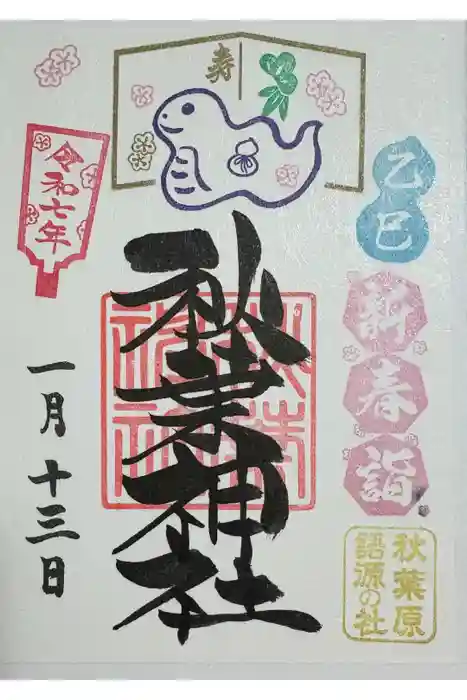 寿
乙巳
新春詣
秋葉原
語源の社
秋葉神社
令和七年
一月十三日